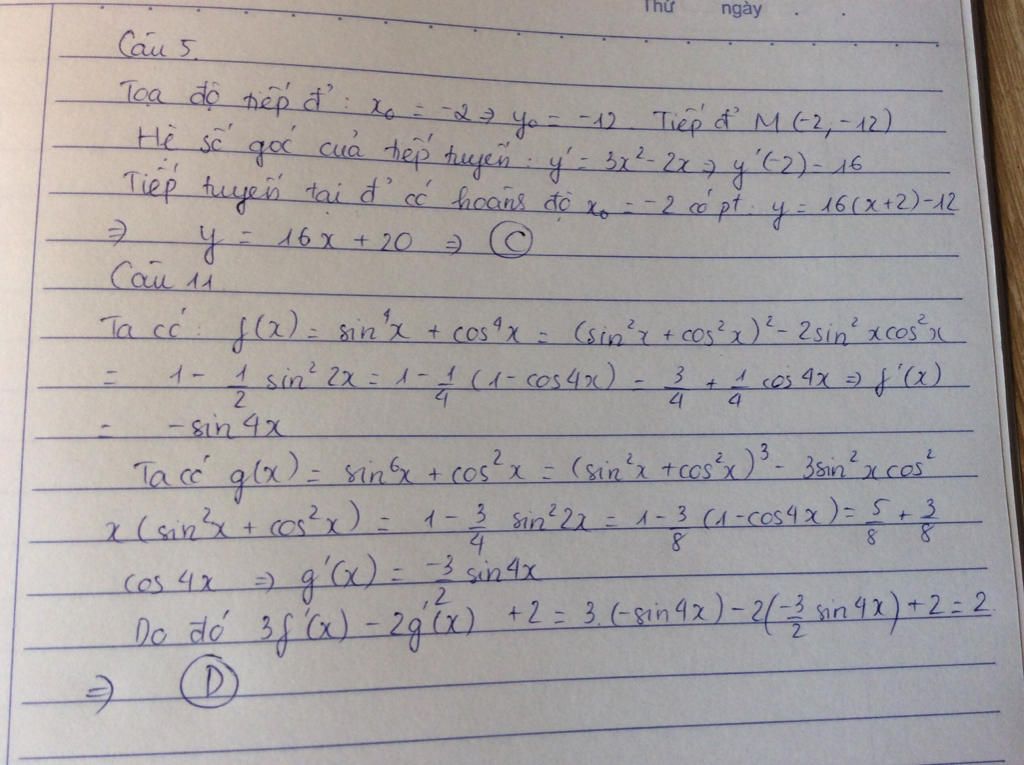 Thứ ngày . .
Câu 5.
Toạ độ tiếp đ' : x₀ = -2 ⇒ y₀ = -12. Tiếp đ' M (-2, -12)
Hệ số góc của tiếp tuyến : y' = 3x² - 2x ⇒ y'(-2) = 16
Tiếp tuyến tại đ' có hoành độ x₀ = -2 có pt : y = 16(x+2) -12
⇒ y = 16x + 20 ⇒ C
Câu 11
Ta có : f(x) = sin⁴x + cos⁴x = (sin²x + cos²x)² - 2sin²xcos²x
= 1 - 1/2 sin² 2x = 1 - 1/4 (1 - cos4x) = 3/4 + 1/4 cos 4x ⇒ f'(x)
= -sin 4x
Ta có g(x) = sin⁶x + cos²x = (sin²x + cos²x)³ - 3sin²xcos²
x (sin²x + cos²x) = 1 - 3/4 sin²2x = 1 - 3/8 (1 - cos4x) = 5/8 + 3/8
cos 4x ⇒ g'(x) = -3/2 sin4x
Do đó 3f'(x) - 2g'(x) + 2 = 3.(-sin4x) - 2(-3/2 sin4x) + 2 = 2
⇒ D